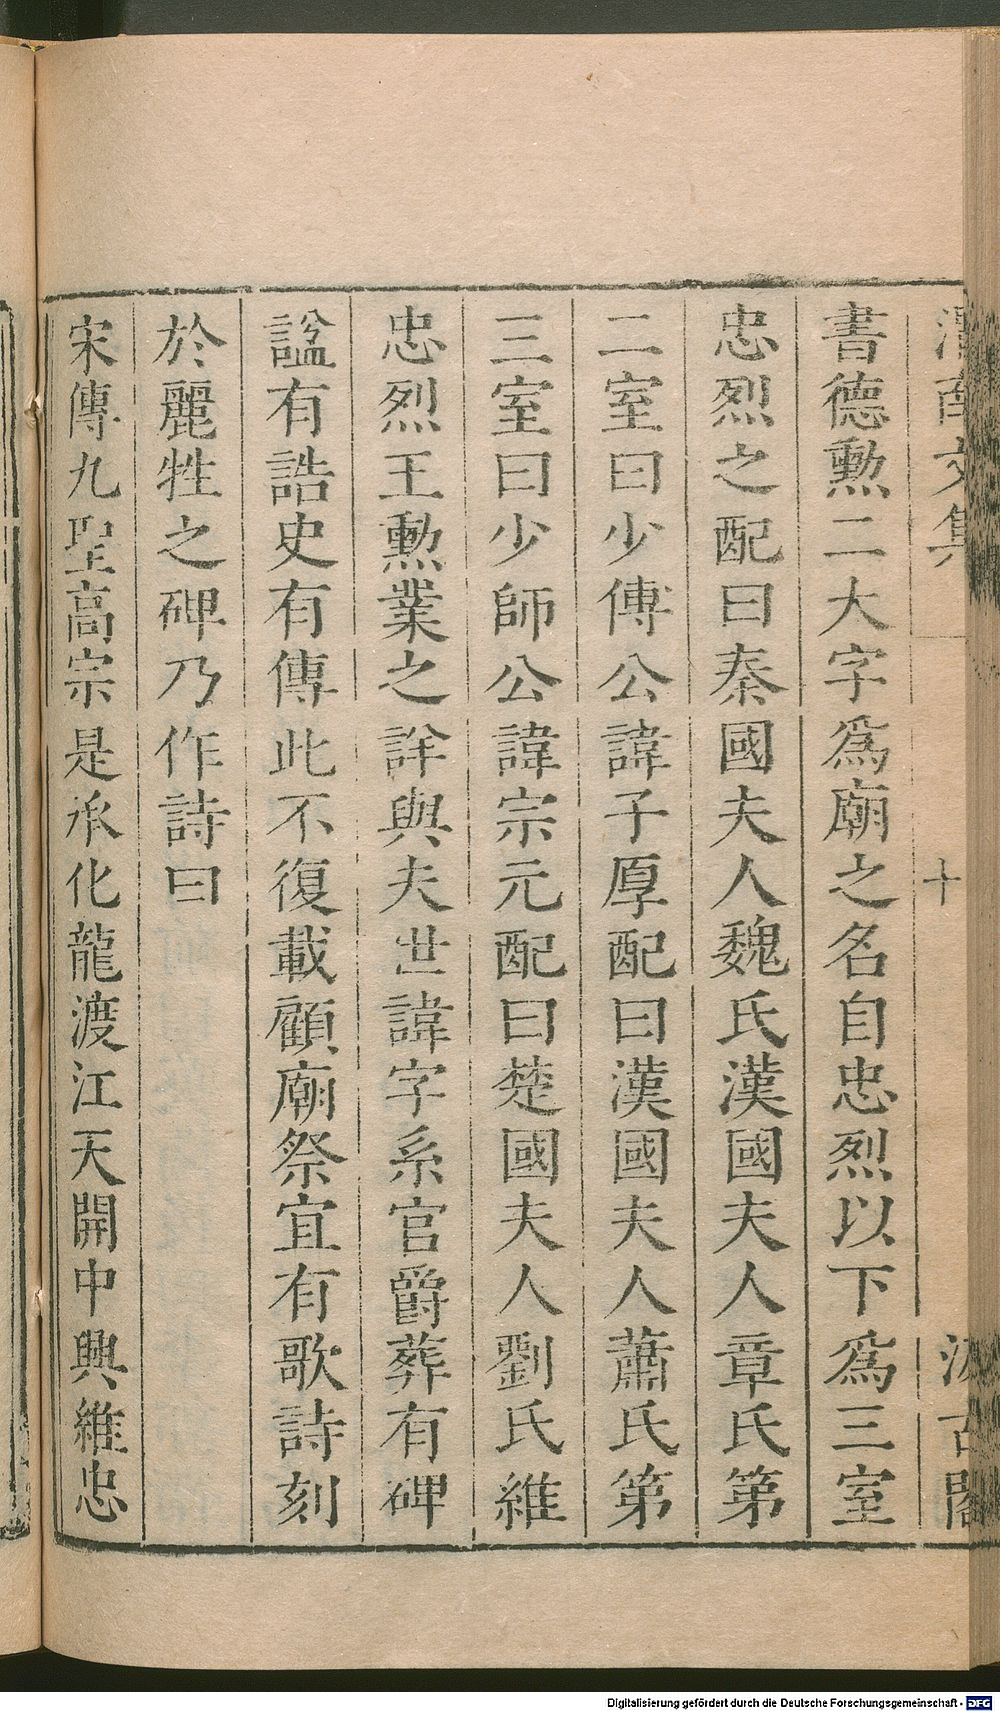 文集
十
古閣
書德勲二大字爲廟之名自忠烈以下爲三室
忠烈之配曰秦國夫人魏氏漢國夫人章氏第
二室曰少傅公諱子厚配曰漢國夫人蕭氏第
三室曰少師公諱宗元配曰楚國夫人劉氏維
忠烈王勲業之詳與夫世諱字系官爵葬有碑
謚有誥史有傳此不復載顧廟祭宜有歌詩刻
於麗牲之碑乃作詩曰
宋傳九聖高宗是承化龍渡江天開中興維忠
Digitalisierung gefördert durch die Deutsche Forschungsgemeinschaft - DFG